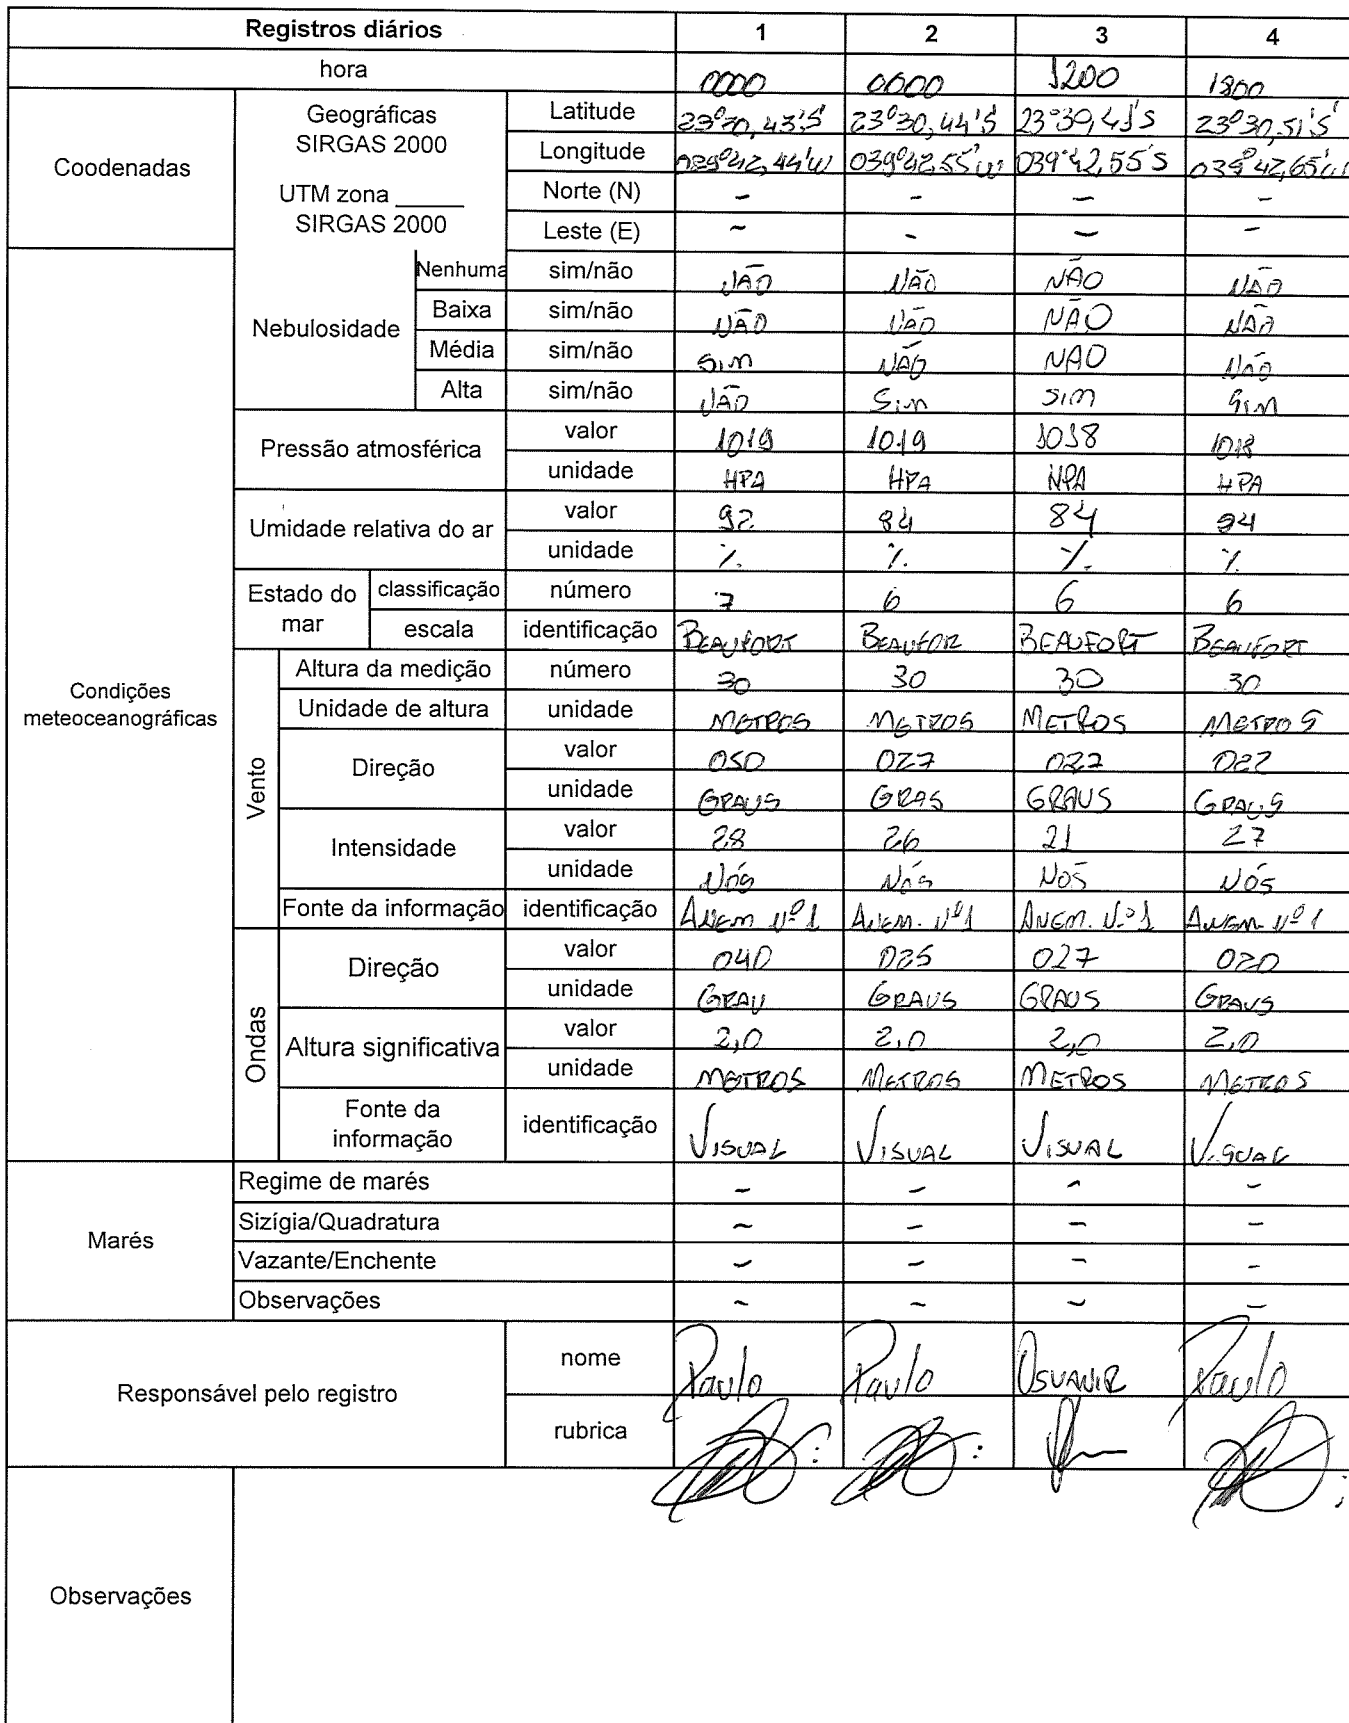 Registros diários 1 2 3 4
hora 0000 0600 1200 1800
Coodenadas Geográficas SIRGAS 2000 UTM zona ______ SIRGAS 2000
Latitude 23°30,43'S 23°30,44'S 23°39,41'S 23°30,51'S
Longitude 039°42,44'W 039°42,55'W 039°42,55'S 039°42,65'W
Norte (N) - - - -
Leste (E) - - - -
Condições meteoceanográficas
Nebulosidade Nenhuma sim/não NÃO NÃO NÃO NÃO
Baixa sim/não NÃO NÃO NÃO NÃO
Média sim/não SIM NÃO NAO NÃO
Alta sim/não NÃO SIM SIM SIM
Pressão atmosférica valor 1019 1019 1018 1018
unidade HPA HPA HPA HPA
Umidade relativa do ar valor 92 84 84 94
unidade % % % %
Estado do mar classificação número 7 6 6 6
escala identificação BEAUFORT BEAUFOR BEAUFORT BEAUFORT
Vento Altura da medição número 30 30 30 30
Unidade de altura unidade METROS METROS METROS METROS
Direção valor 050 027 027 022
unidade GRAUS GRAS GRAUS GRAUS
Intensidade valor 28 26 21 27
unidade NÓS NÓS NÓS NÓS
Fonte da informação identificação ANEM Nº1 ANEM. Nº1 ANEM. Nº1 ANEM Nº1
Ondas Direção valor 040 025 027 020
unidade GRAU GRAUS GRAUS GRAUS
Altura significativa valor 2,0 2,0 2,0 2,0
unidade METROS METROS METROS METROS
Fonte da informação identificação VISUAL VISUAL VISUAL VISUAL
Marés Regime de marés - - - -
Sizígia/Quadratura - - - -
Vazante/Enchente - - - -
Observações - - - -
Responsável pelo registro nome Paulo Paulo OSVANIR Paulo
rubrica
Observações